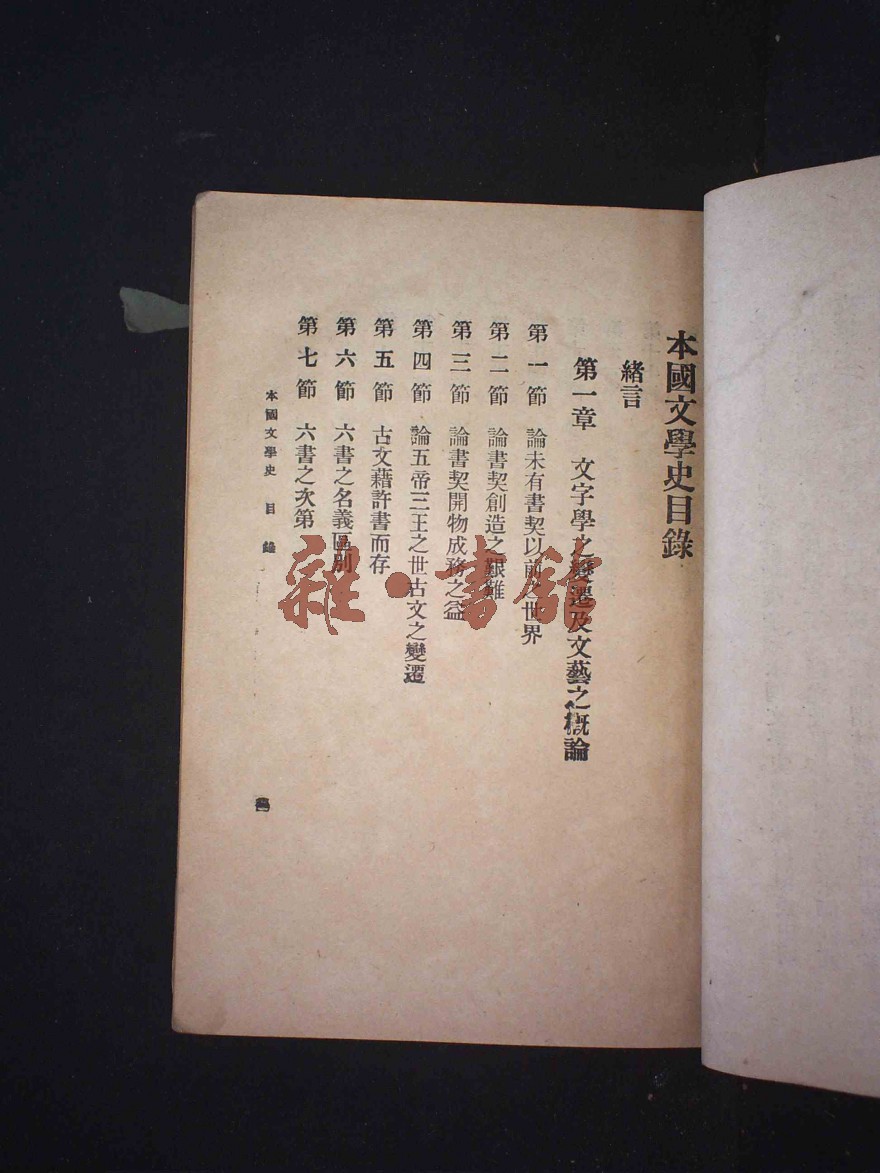 本國文學史目錄
緒言
第一章 文字學之變遷及文藝之概論
第一節 論未有書契以前之世界
第二節 論書契創造之艱難
第三節 論書契開物成務之益
第四節 論五帝三王之世古文之變遷
第五節 古文藉許書而存
第六節 六書之名義區別
第七節 六書之次第
本國文學史 目錄
雜·書館